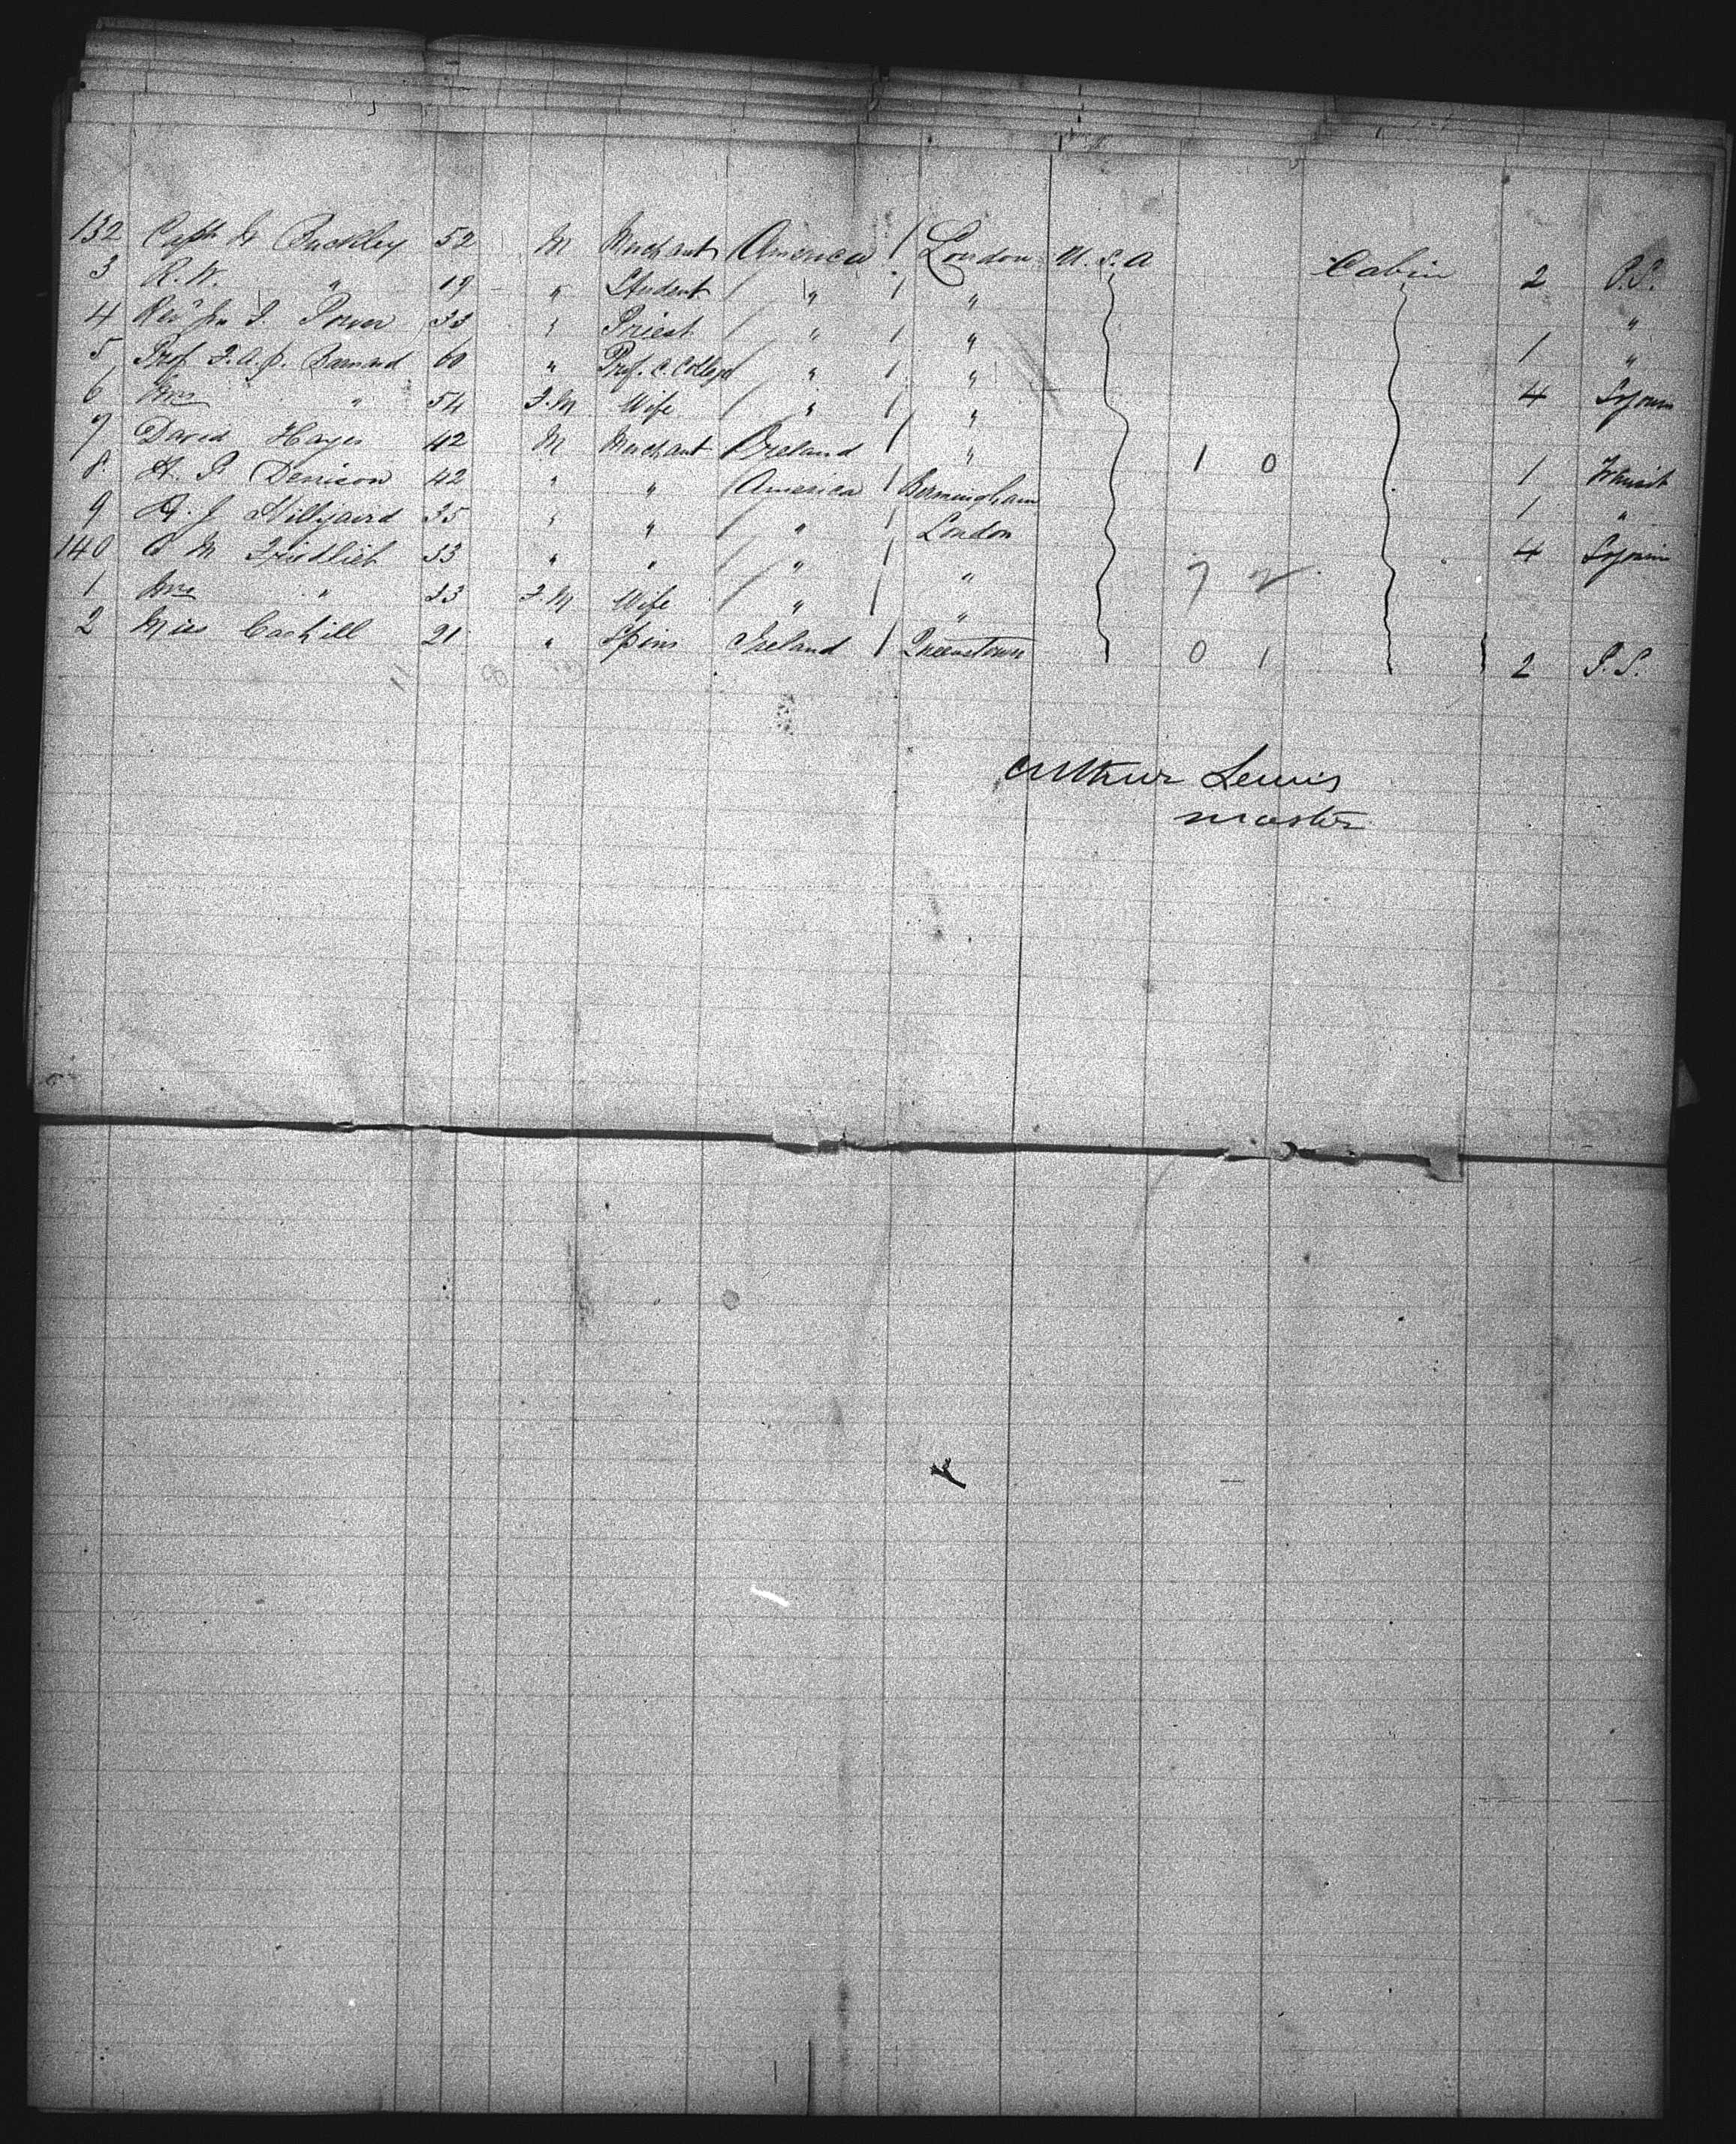 132 Capt W Buckley 52 M Merchant / America / London U.S.A Cabin 2 P.S.
3 R.W. " 19 " Student / " / " "
4 Rev Jn J. Power 33 " Priest / " / " 1 "
5 Prof. F.A.P. Barnard 60 " Prof. C. College / " / " 4 Sojourn
6 Mrs " 54 F.M Wife / " / "
7 David Hayes 42 M Merchant / Ireland / " 1 0 1 Transit
8 H. P Denison 42 " " / America / Birmingham 1 "
9 H. J Hillyaird 35 " " / " / London 4 Sojourn
140 C M Friedlich 33 " " / " / " 7 2
1 Mrs " 33 F.M Wife / " / "
2 Miss Cashill 21 " Spins Ireland / Queenstown 0 1 2 P.S.
Arthur Lewis
master